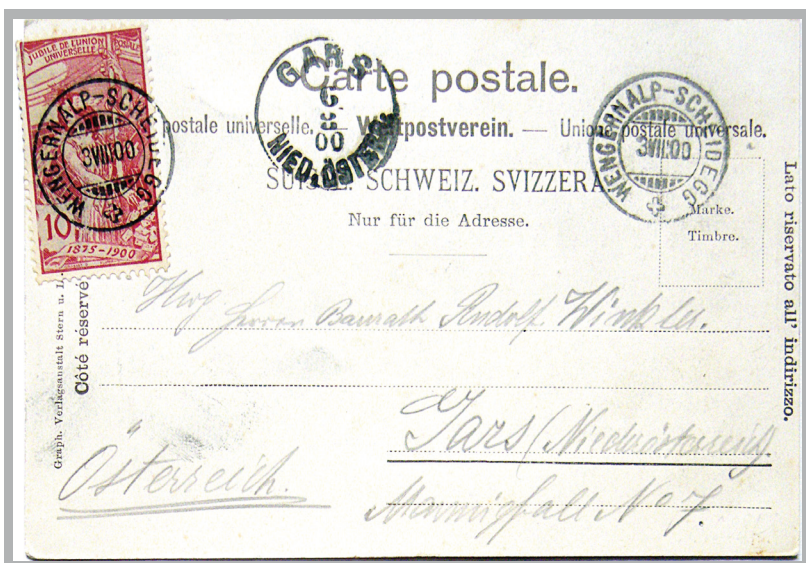 JUBILÉ DE L'UNION POSTALE
UNIVERSELLE
10
1875-1900
WENGERNALP-SCHEIDEGG
3 VIII 00
GARS
00
NIED. ÖSTERR.
WENGERNALP-SCHEIDEGG
3 VIII 00
Carte postale.
postale universelle. — Weltpostverein. — Union postale universale.
SUISSE. SCHWEIZ. SVIZZERA
Nur für die Adresse.
Marke.
Timbre.
Lato riservato all' indirizzo.
Côté réservé
Graph. Verlagsanstalt Stern u.
Herrn Baurath Rudolf Winkler.
Gars (Niederösterreich).
Österreich.
Mannigfall No 7.